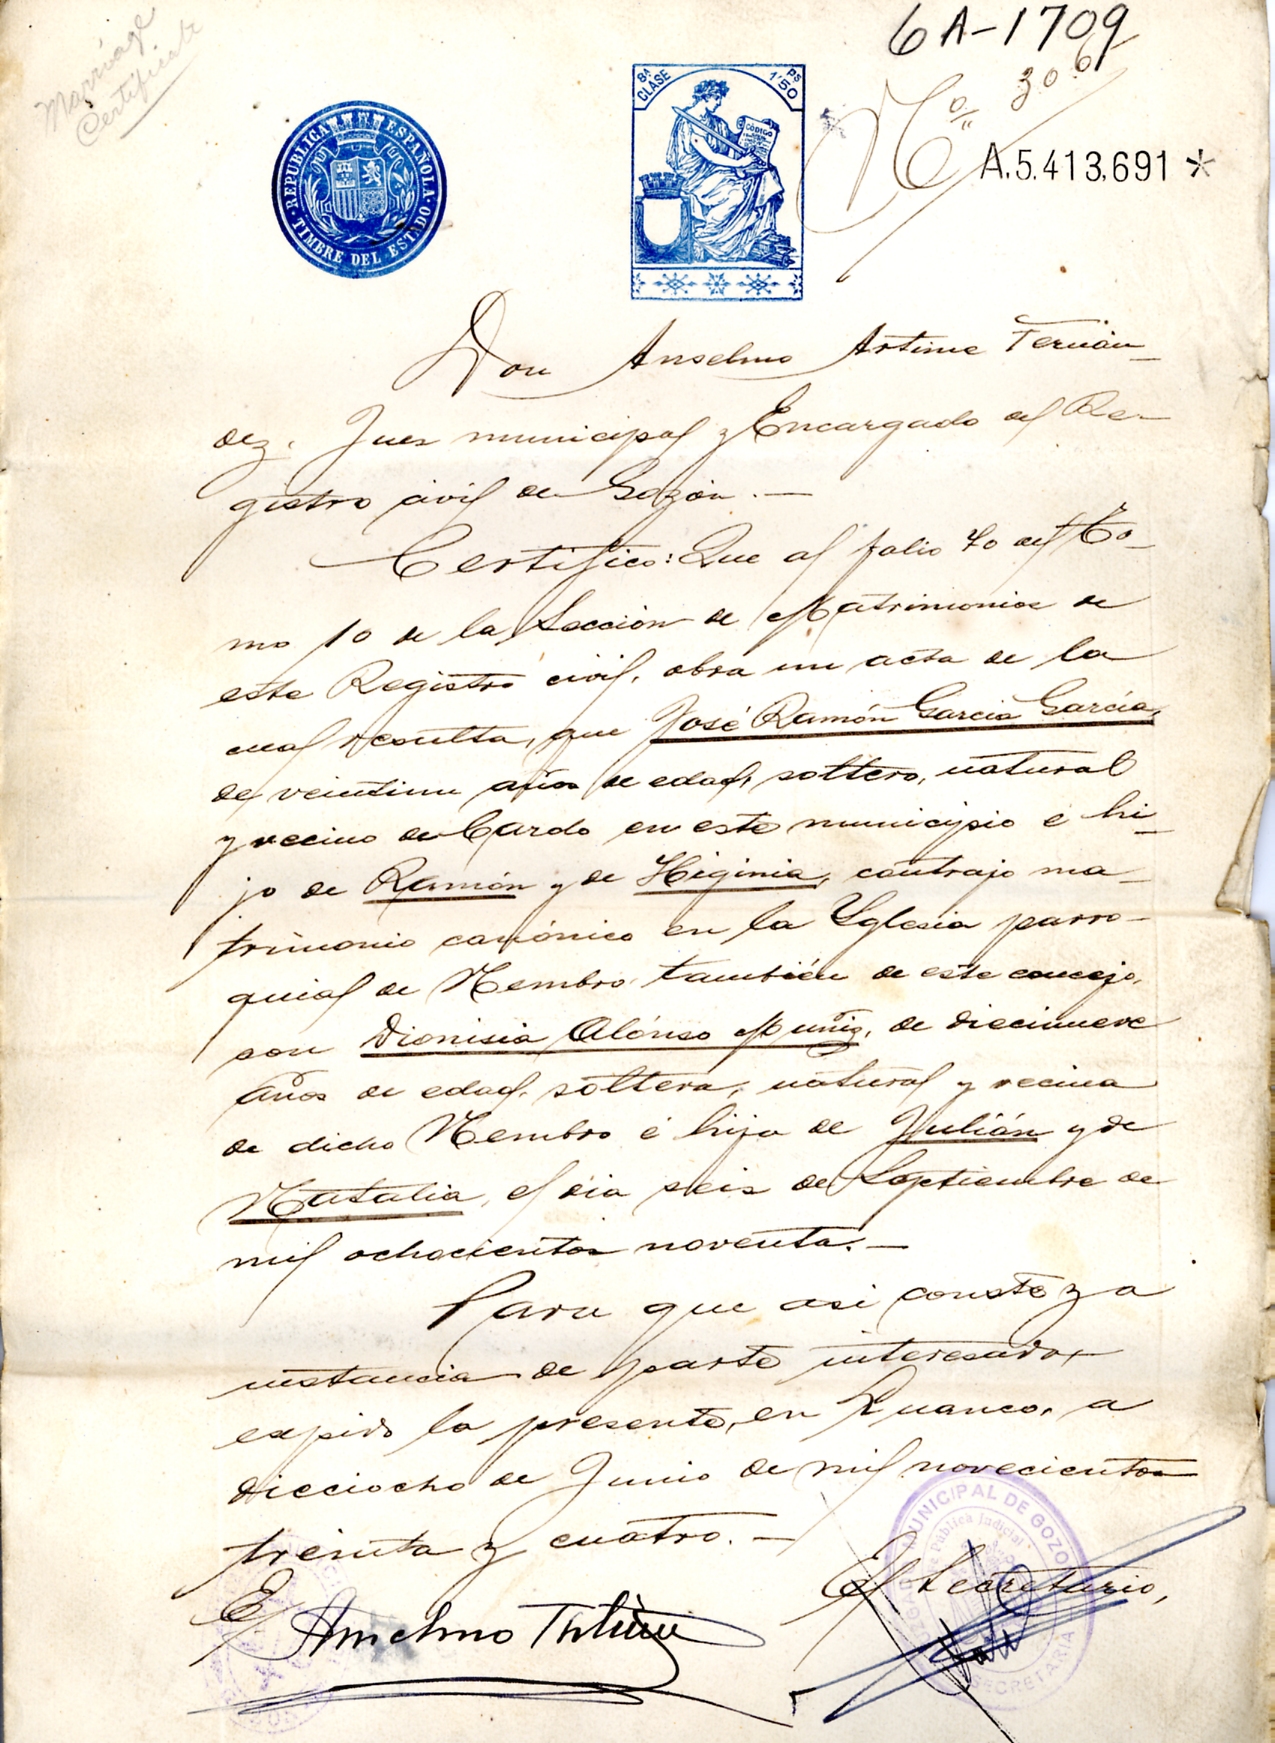 Marriage
Certificate
6A-1709
Nº 306
A.5.413,691 *
REPUBLICA ESPAÑOLA
TIMBRE DEL ESTADO
8ª CLASE
Ps 1'50
CÓDIGO
Don Anselmo Artime Fernán-
dez. Juez municipal y Encargado del Re-
gistro civil de Gozón.—
Certifico: Que al folio 40 del to-
mo 10 de la Sección de Matrimonios de
este Registro civil, obra un acta de la
cual resulta, que José Ramón García García,
de veintiun años de edad, soltero, natural
y vecino de Cardo en este municipio é hi-
jo de Ramón y de Higinia, contrajo ma-
trimonio canónico en la Yglesia parro-
quial de Nembro también de este concejo,
con Dionisia Alónso Muñiz, de diecinueve
años de edad, soltera, natural y vecina
de dicho Nembro é hija de Julián y de
Natalia, el día seis de Septiembre de
mil ochocientos noventa.—
Para que asi conste y a
instancia de parte interesada,
expido la presente, en Luanco, a
dieciocho de Junio de mil novecientos
treinta y cuatro.—
El Secretario,
Anselmo Artime
MUNICIPAL DE GOZON
Fe Pública Judicial
SECRETARIA